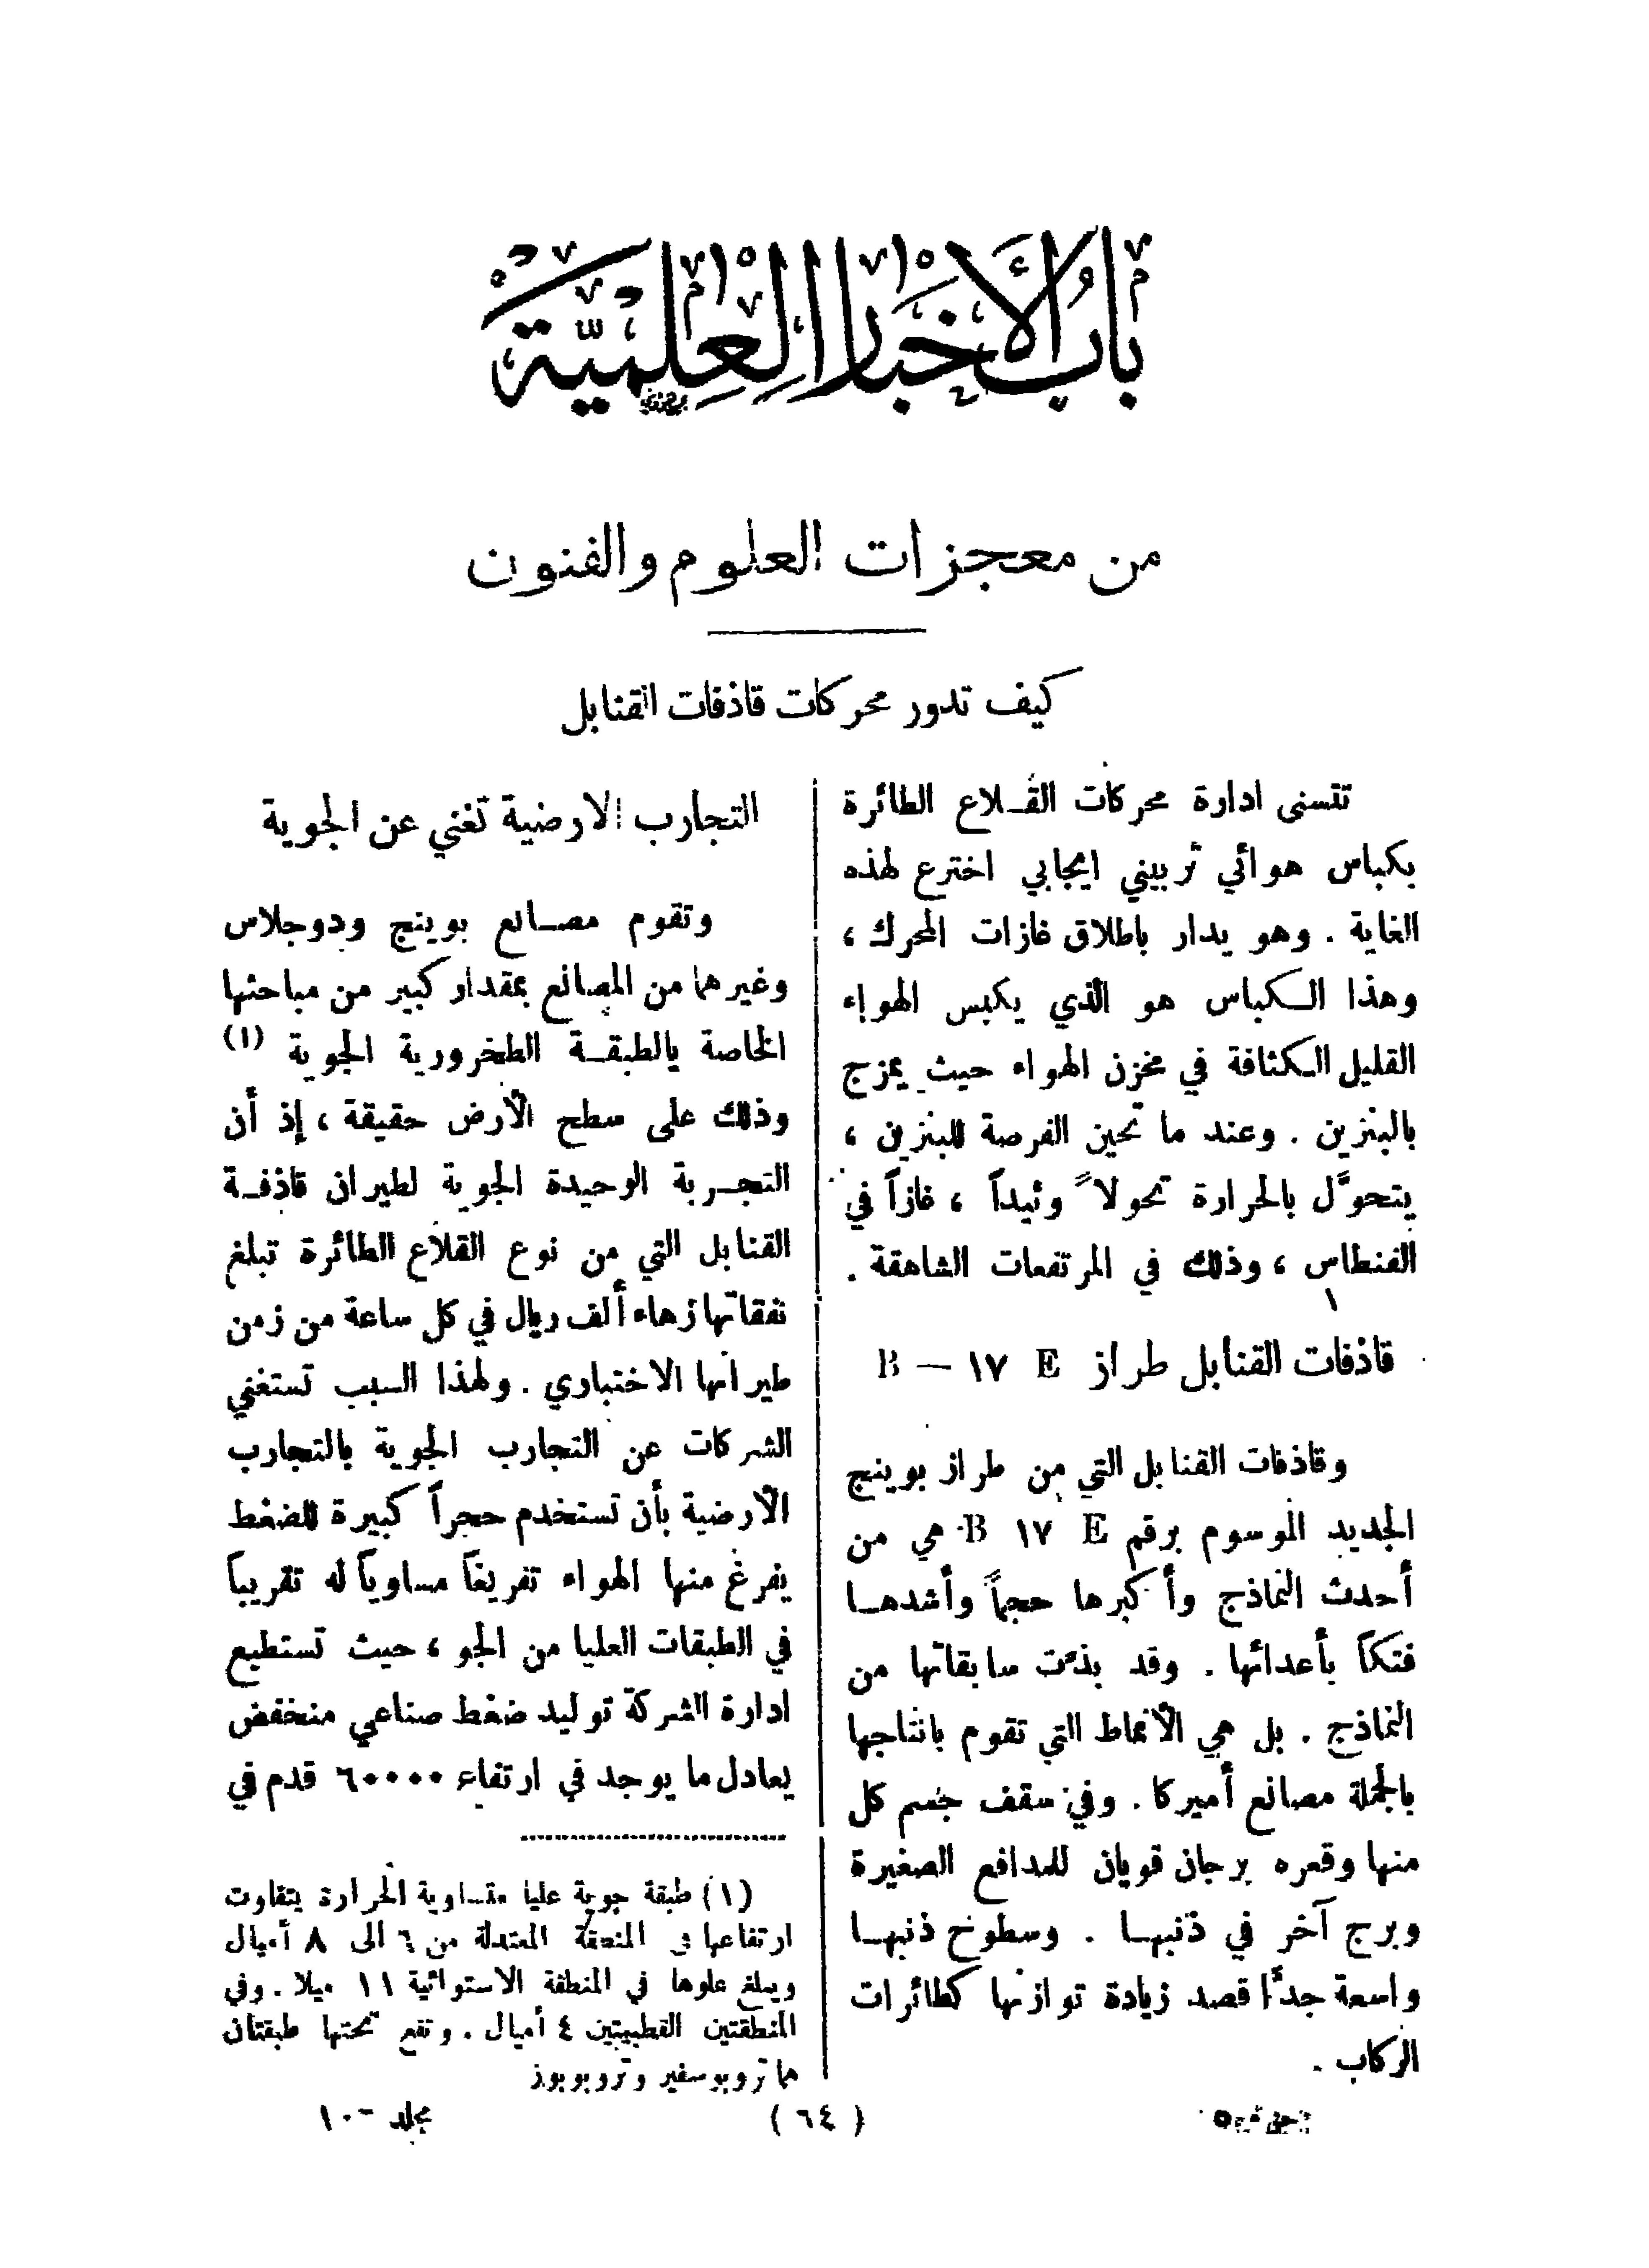 باب الأخبار العلمية
من معجزات العلوم والفنون
كيف تدور محركات قاذفات القنابل
تتسنى ادارة محركات القلاع الطائرة
بكباس هوائي تربيني ايجابي اخترع لهذه
الغاية . وهو يدار باطلاق غازات المحرك ،
وهذا الكباس هو الذي يكبس الهواء
القليل الكثافة في مخزن الهواء حيث يمزج
بالبنزين . وعند ما تحين الفرصة للبنزين ،
يتحوّل بالحرارة تحولاً وئيداً ، غازاً في
الفنطاس ، وذلك في المرتفعات الشاهقة .
قاذفات القنابل طراز B — ١٧ E
وقاذفات القنابل التي من طراز بوينج
الجديد الموسوم برقم B ١٧ E هي من
أحدث النماذج وأكبرها حجماً وأشدها
فتكاً بأعدائها . وقد بذّت سابقاتها من
النماذج . بل هي الأنماط التي تقوم بانتاجها
بالجملة مصانع أميركا . وفي سقف جسم كل
منها وقعره برجان قويان للمدافع الصغيرة
وبرج آخر في ذنبها . وسطوح ذنبها
واسعة جدّاً قصد زيادة توازنها كطائرات
الركاب .
التجارب الارضية تغني عن الجوية
وتقوم مصانع بوينج ودوجلاس
وغيرهما من المصانع بمقدار كبير من مباحثها
الخاصة بالطبقة الطخرورية الجوية (١)
وذلك على سطح الأرض حقيقة ، إذ أن
التجربة الوحيدة الجوية لطيران قاذفة
القنابل التي من نوع القلاع الطائرة تبلغ
نفقاتها زهاء ألف ريال في كل ساعة من زمن
طيرانها الاختباري . ولهذا السبب تستغني
الشركات عن التجارب الجوية بالتجارب
الأرضية بأن تستخدم حجراً كبيرة للضغط
يفرغ منها الهواء تفريغاً مساوياً له تقريباً
في الطبقات العليا من الجو ، حيث تستطيع
ادارة الشركة توليد ضغط صناعي منخفض
يعادل ما يوجد في ارتفاع ٦٠٠٠٠ قدم في
(١) طبقة جوية عليا متساوية الحرارة يتفاوت
ارتفاعها في المنطقة المعتدلة من ٦ الى ٨ أميال
ويبلغ علوها في المنطقة الاستوائية ١١ ميلا . وفي
المنطقتين القطبيتين ٤ أميال . وتقع تحتها طبقتان
هما تروبوسفير وتروبوبوز
(٦٤)
مجلد ١٠٠